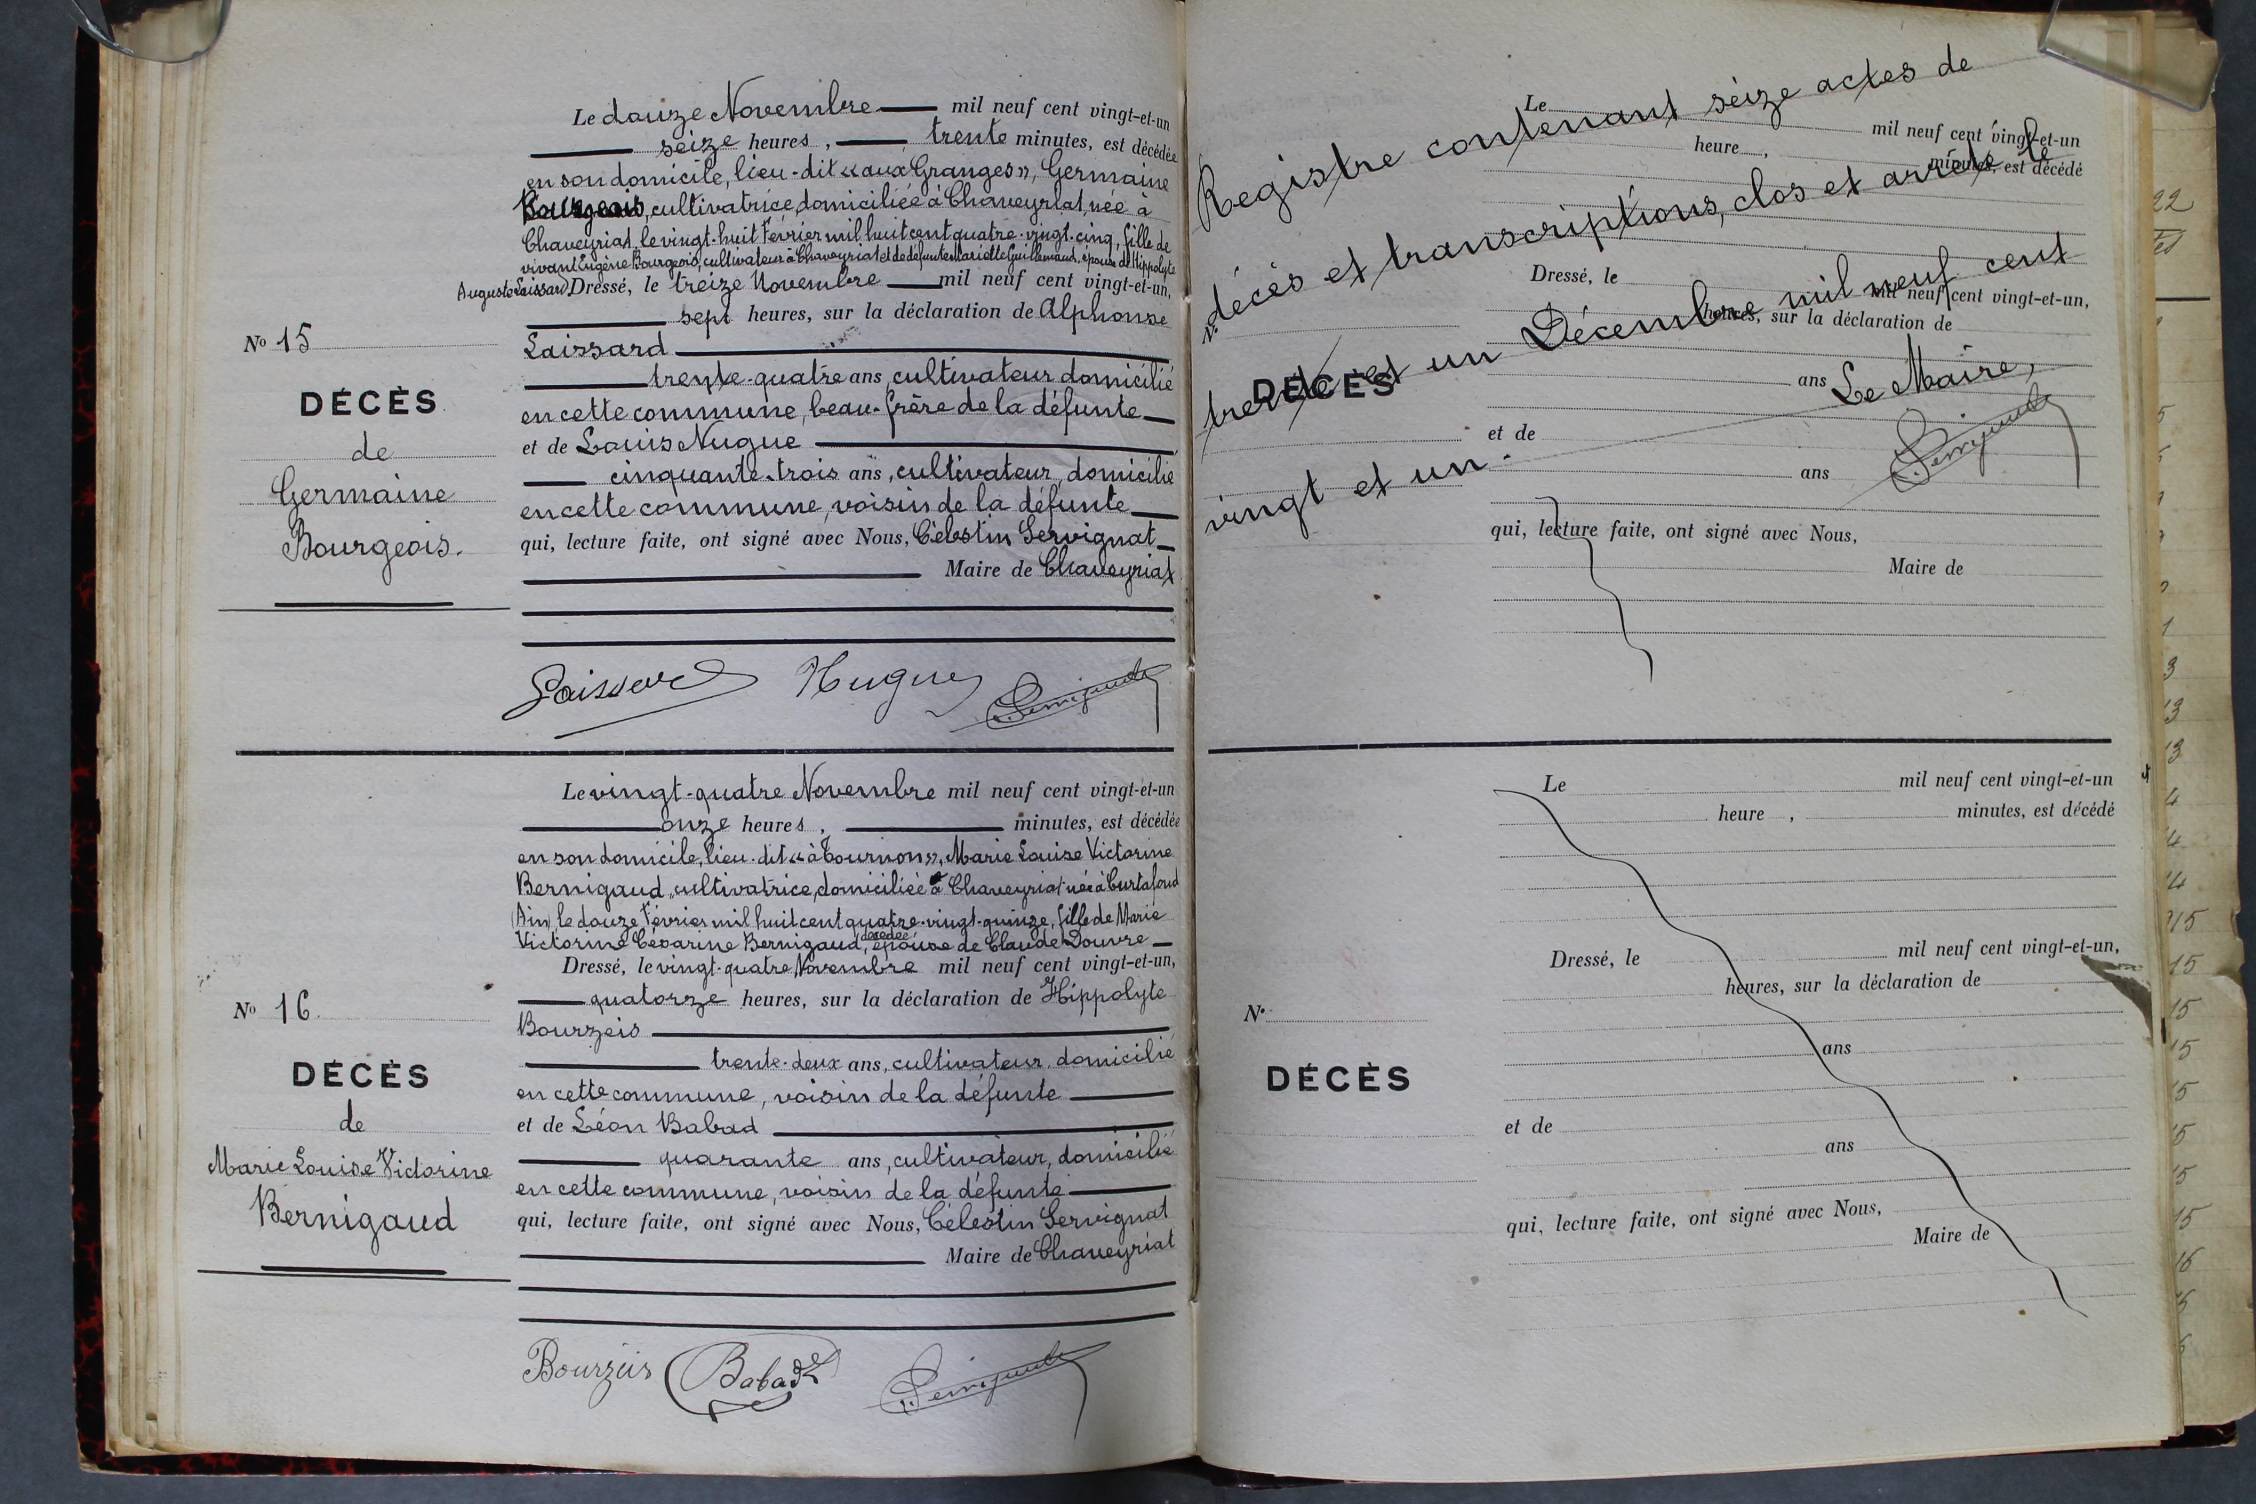 Le douze Novembre mil neuf cent vingt-et-un
seize heures, trente minutes, est décédée
en son domicile, lieu-dit « aux Granges », Germaine
Bourgeois, cultivatrice, domiciliée à Chaveyriat, née à
Chaveyriat, le vingt-huit Février mil huit cent quatre-vingt-cinq, fille de
vivant Eugène Bourgeois, cultivateur à Chaveyriat et de défunte Mariette Guillemaud, épouse de Hippolyte
Auguste Laissard. Dressé, le treize Novembre mil neuf cent vingt-et-un,
sept heures, sur la déclaration de Alphonse
Laissard
trente-quatre ans, cultivateur domicilié
en cette commune, beau-frère de la défunte
et de Louis Nugue
cinquante-trois ans, cultivateur, domicilié
en cette commune, voisin de la défunte
qui, lecture faite, ont signé avec Nous, Célestin Servignat
Maire de Chaveyriat
Nº 15
DÉCÈS
de
Germaine
Bourgeois.
Laissard Nugue
Le vingt-quatre Novembre mil neuf cent vingt-et-un
onze heures, minutes, est décédée
en son domicile, lieu-dit « à Tournon », Marie Louise Victorine
Bernigaud, cultivatrice, domiciliée à Chaveyriat née à Curtafond
(Ain) le douze Février mil huit cent quatre-vingt-quinze, fille de Marie
Victorine Césarine Bernigaud, décédée, épouse de Claude Douvre
Dressé, le vingt-quatre Novembre mil neuf cent vingt-et-un,
quatorze heures, sur la déclaration de Hippolyte
Bourzeis
trente-deux ans, cultivateur, domicilié
en cette commune, voisin de la défunte
et de Léon Babad
quarante ans, cultivateur, domicilié
en cette commune, voisin de la défunte
qui, lecture faite, ont signé avec Nous, Célestin Servignat
Maire de Chaveyriat
Nº 16
DÉCÈS
de
Marie Louise Victorine
Bernigaud
Bourzeis Babad
Registre contenant seize actes de
décès et transcriptions, clos et arrêté le
trente et un Décembre mil neuf cent
vingt et un.
Le Maire,
Le mil neuf cent vingt-et-un
heure , minutes, est décédé
Dressé, le mil neuf cent vingt-et-un,
heures, sur la déclaration de
Nº
DÉCÈS
ans
et de
ans
qui, lecture faite, ont signé avec Nous,
Maire de
Le mil neuf cent vingt-et-un
heure , minutes, est décédé
Dressé, le mil neuf cent vingt-et-un,
heures, sur la déclaration de
Nº
DÉCÈS
ans
et de
ans
qui, lecture faite, ont signé avec Nous,
Maire de